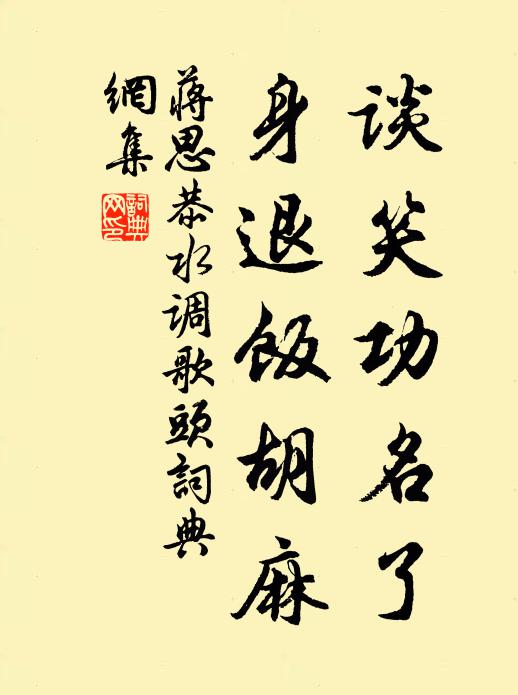 谈笑功名了
身退饭胡麻
蒋思恭水调歌頭詞典
網集
詞典
网印